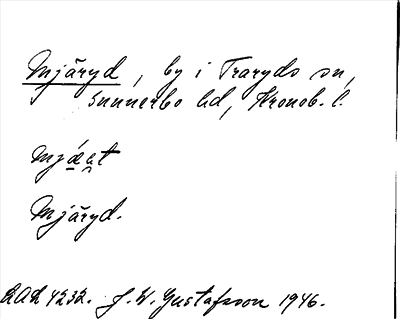 Mjäryd, by i Traryds sn,
Sunnerbo hd, Kronob. l.
Mjäryd.
4232. J. W. Gustafsson 1946.